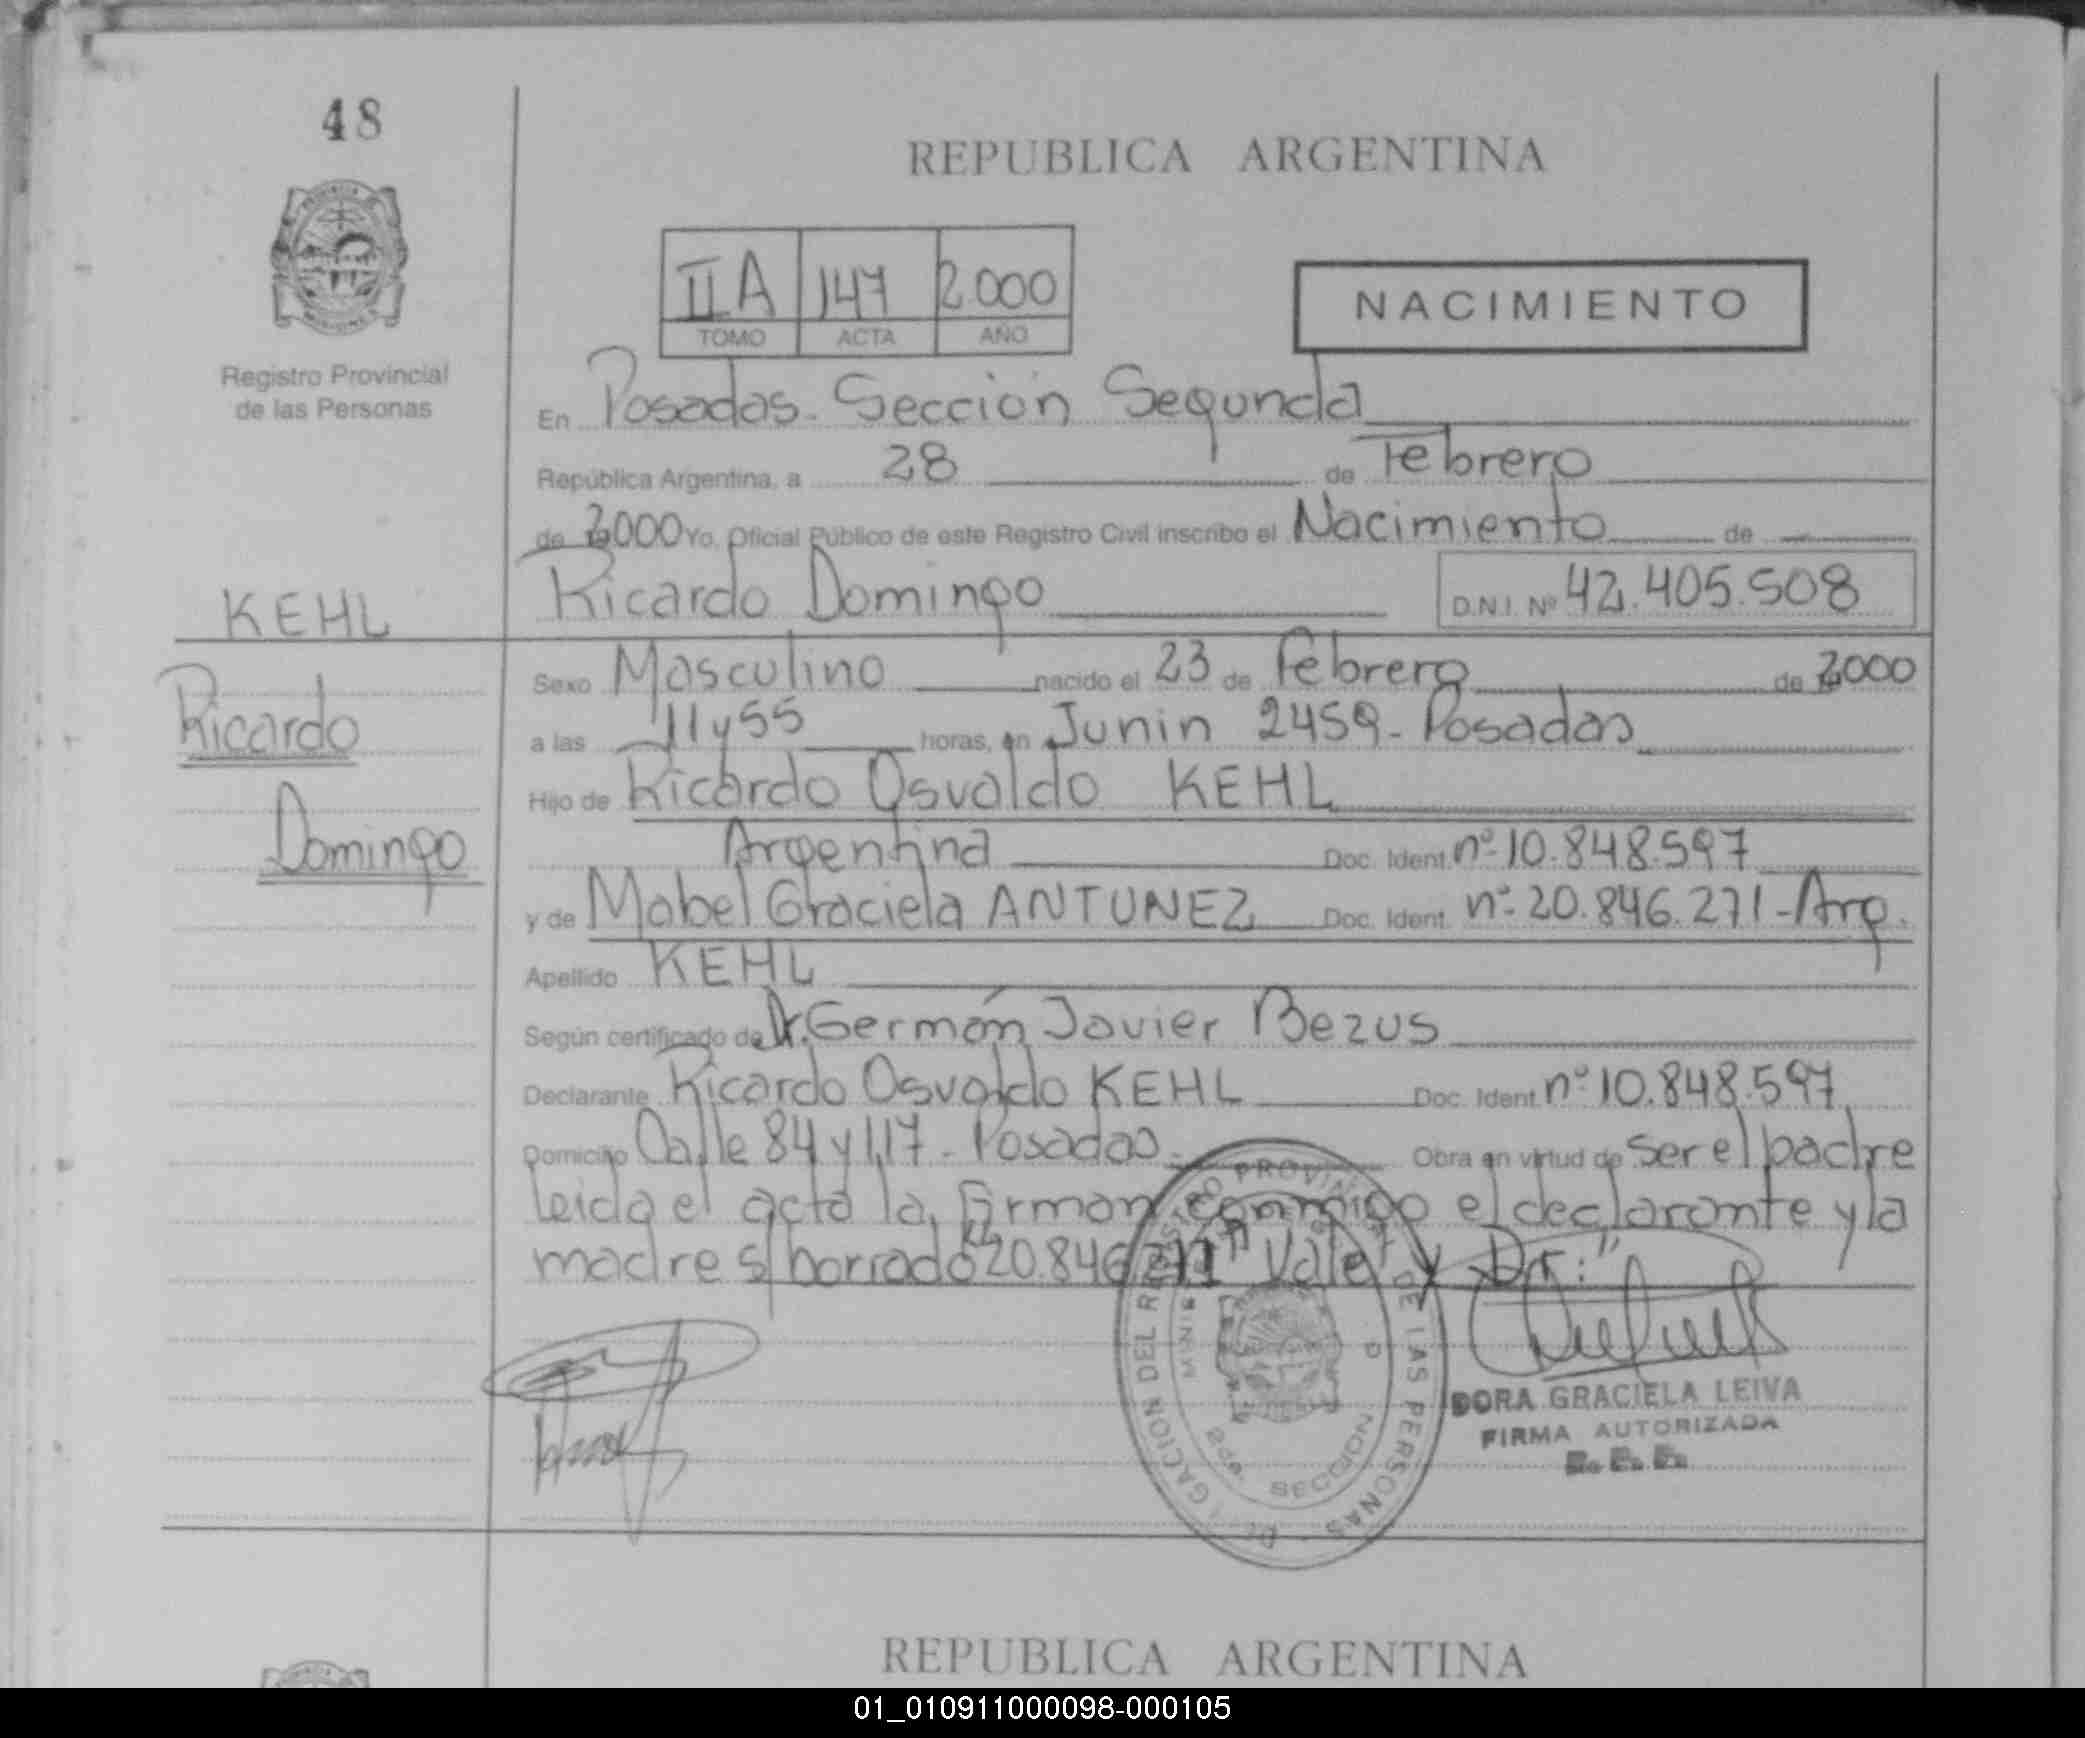 48
REPUBLICA ARGENTINA
II A 147 2.000
TOMO ACTA AÑO
NACIMIENTO
Registro Provincial
de las Personas
En Posadas. Sección Segunda
República Argentina, a 28 de Febrero
de 2000 Yo, Oficial Público de este Registro Civil inscribo el Nacimiento de
Ricardo Domingo D.N.I. Nº 42.405.508
KEHL
Ricardo
Domingo
Sexo Masculino nacido el 23 de Febrero de 2000
a las 11 y 55 horas, en Junin 2459 - Posadas
Hijo de Ricardo Osvaldo KEHL
Argentina Doc. Ident. nº 10.848.597
y de Mabel Graciela ANTUNEZ Doc. Ident. nº 20.846.271 - Arg.
Apellido KEHL
Según certificado de Dr. Germán Javier Bezus
Declarante Ricardo Osvaldo KEHL Doc. Ident. nº 10.848.597
Domicilio Calle 84 y 117 - Posadas Obra en virtud de ser el padre
leida el acta la firman conmigo el declarante y la
madre s/ borrado "20.846.271" Vale y "Dr."
DELEGACION DEL REGISTRO PROVINCIAL DE LAS PERSONAS
2da. SECCION
DORA GRACIELA LEIVA
FIRMA AUTORIZADA
REPUBLICA ARGENTINA
01_010911000098-000105